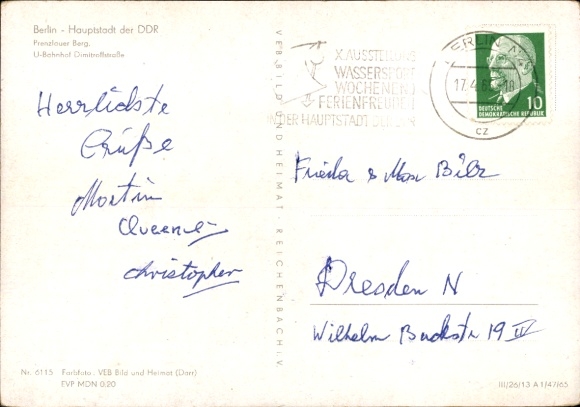 Berlin - Hauptstadt der DDR
Prenzlauer Berg,
U-Bahnhof Dimitroffstraße
Herrlichste
Grüße
Martin
Christopher
Nr. 6115 Farbfoto: VEB Bild und Heimat (Darr)
EVP MDN 0,20
VEB BILD UND HEIMAT · REICHENBACH i. V.
X. AUSSTELLUNG
WASSERSPORT
WOCHENEND
FERIENFREUDEN
IN DER HAUPTSTADT BERLIN
BERLIN
17.4.65
cz
DEUTSCHE
DEMOKRATISCHE REPUBLIK 10
Frieda & Max
Dresden N
Wilhelm Buckstr 19 IV
III/26/13 A 1/47/65